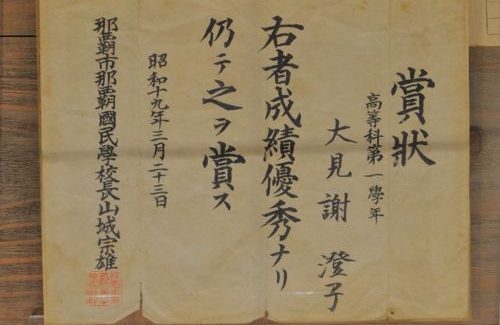 賞狀
高等科第一學年
大見謝澄子
右者成績優秀ナリ
仍テ之ヲ賞ス
昭和十九年三月二十三日
那覇市那覇國民學校長山城宗雄